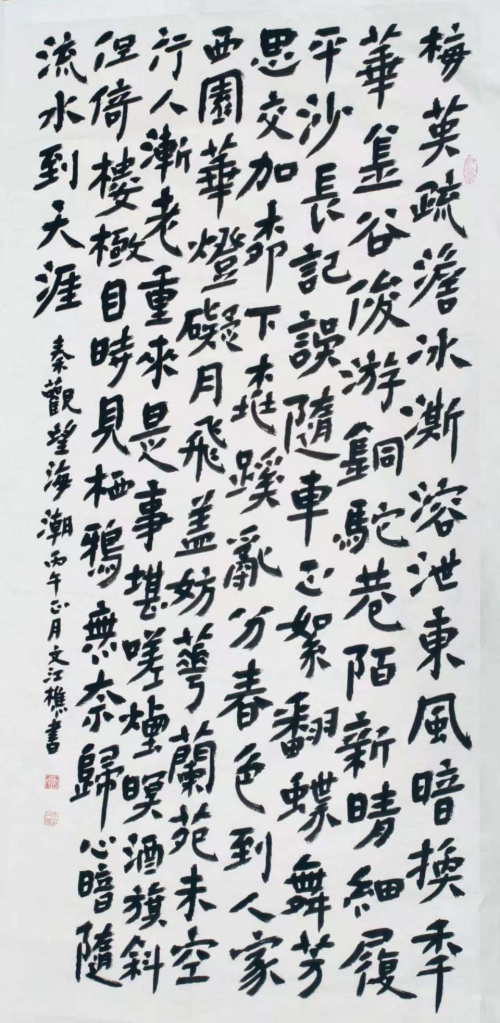 梅英疏澹冰澌溶泄東風暗換秊
華金谷俊游銅駝巷陌新晴細履
平沙長記誤隨車正絮翻蝶舞芳
思交加桺下桃蹊亂分春色到人家
西園華燈礙月飛蓋妨華蘭苑未空
行人漸老重來是事堪嗟煙暝酒旗斜
但倚樓極目時見栖鴉無奈歸心暗隨
流水到天涯
秦觀望海潮丙午正月文江樵書